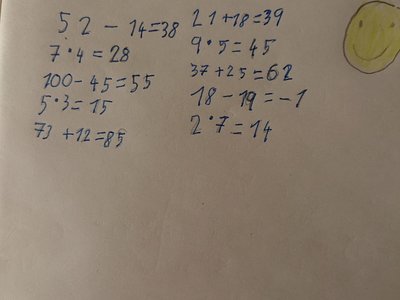 52 - 14=38
7·4=28
100-45=55
5·3=15
73+12=85
21+18=39
9·5=45
37+25=62
18-19=-1
2·7=14